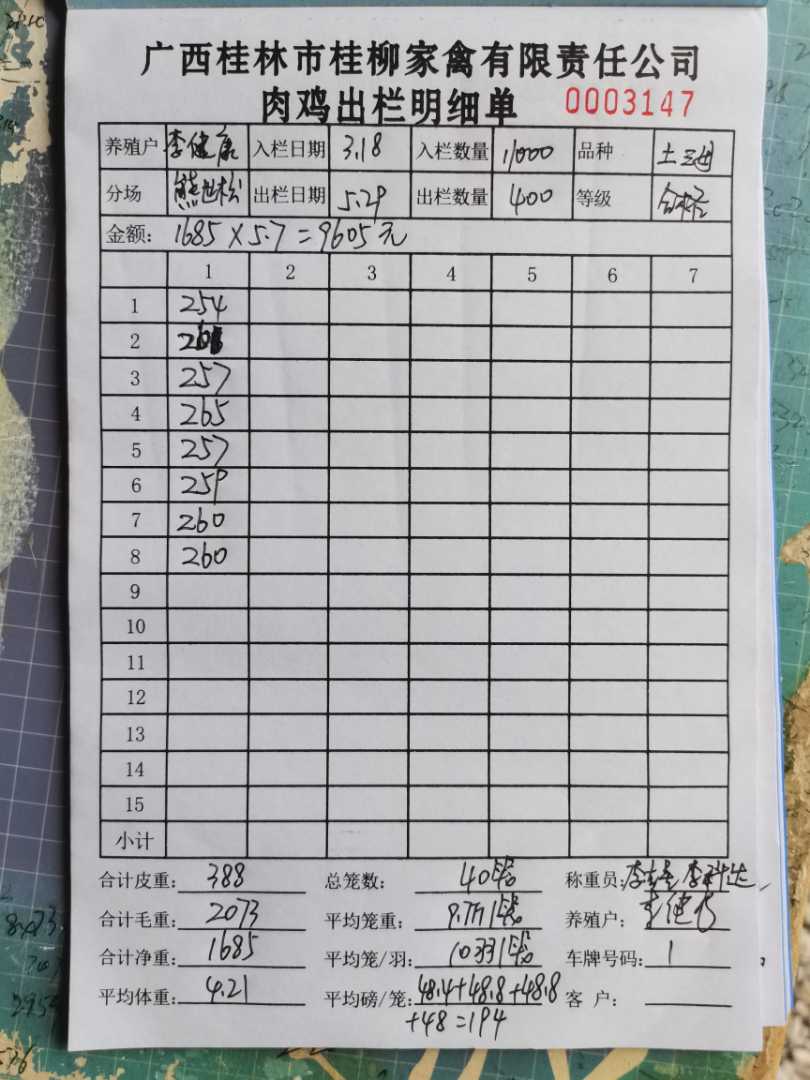 广西桂林市桂柳家禽有限责任公司
肉鸡出栏明细单 0003147
养殖户 李健康 入栏日期 3.18 入栏数量 11000 品种 土三
分场 熊世松 出栏日期 5.29 出栏数量 400 等级 合格
金额: 1685×5.7=9605元
1 2 3 4 5 6 7
1 254
2
3 257
4 265
5 257
6 259
7 260
8 260
9
10
11
12
13
14
15
小计
合计皮重: 388 总笼数: 40 称重员:
合计毛重: 2073 平均笼重: 养殖户:
合计净重: 1685 平均笼/羽: 10 车牌号码: 1
平均体重: 4.21 平均磅/笼: 48.4+48.8+48.8 客 户:
+48=194